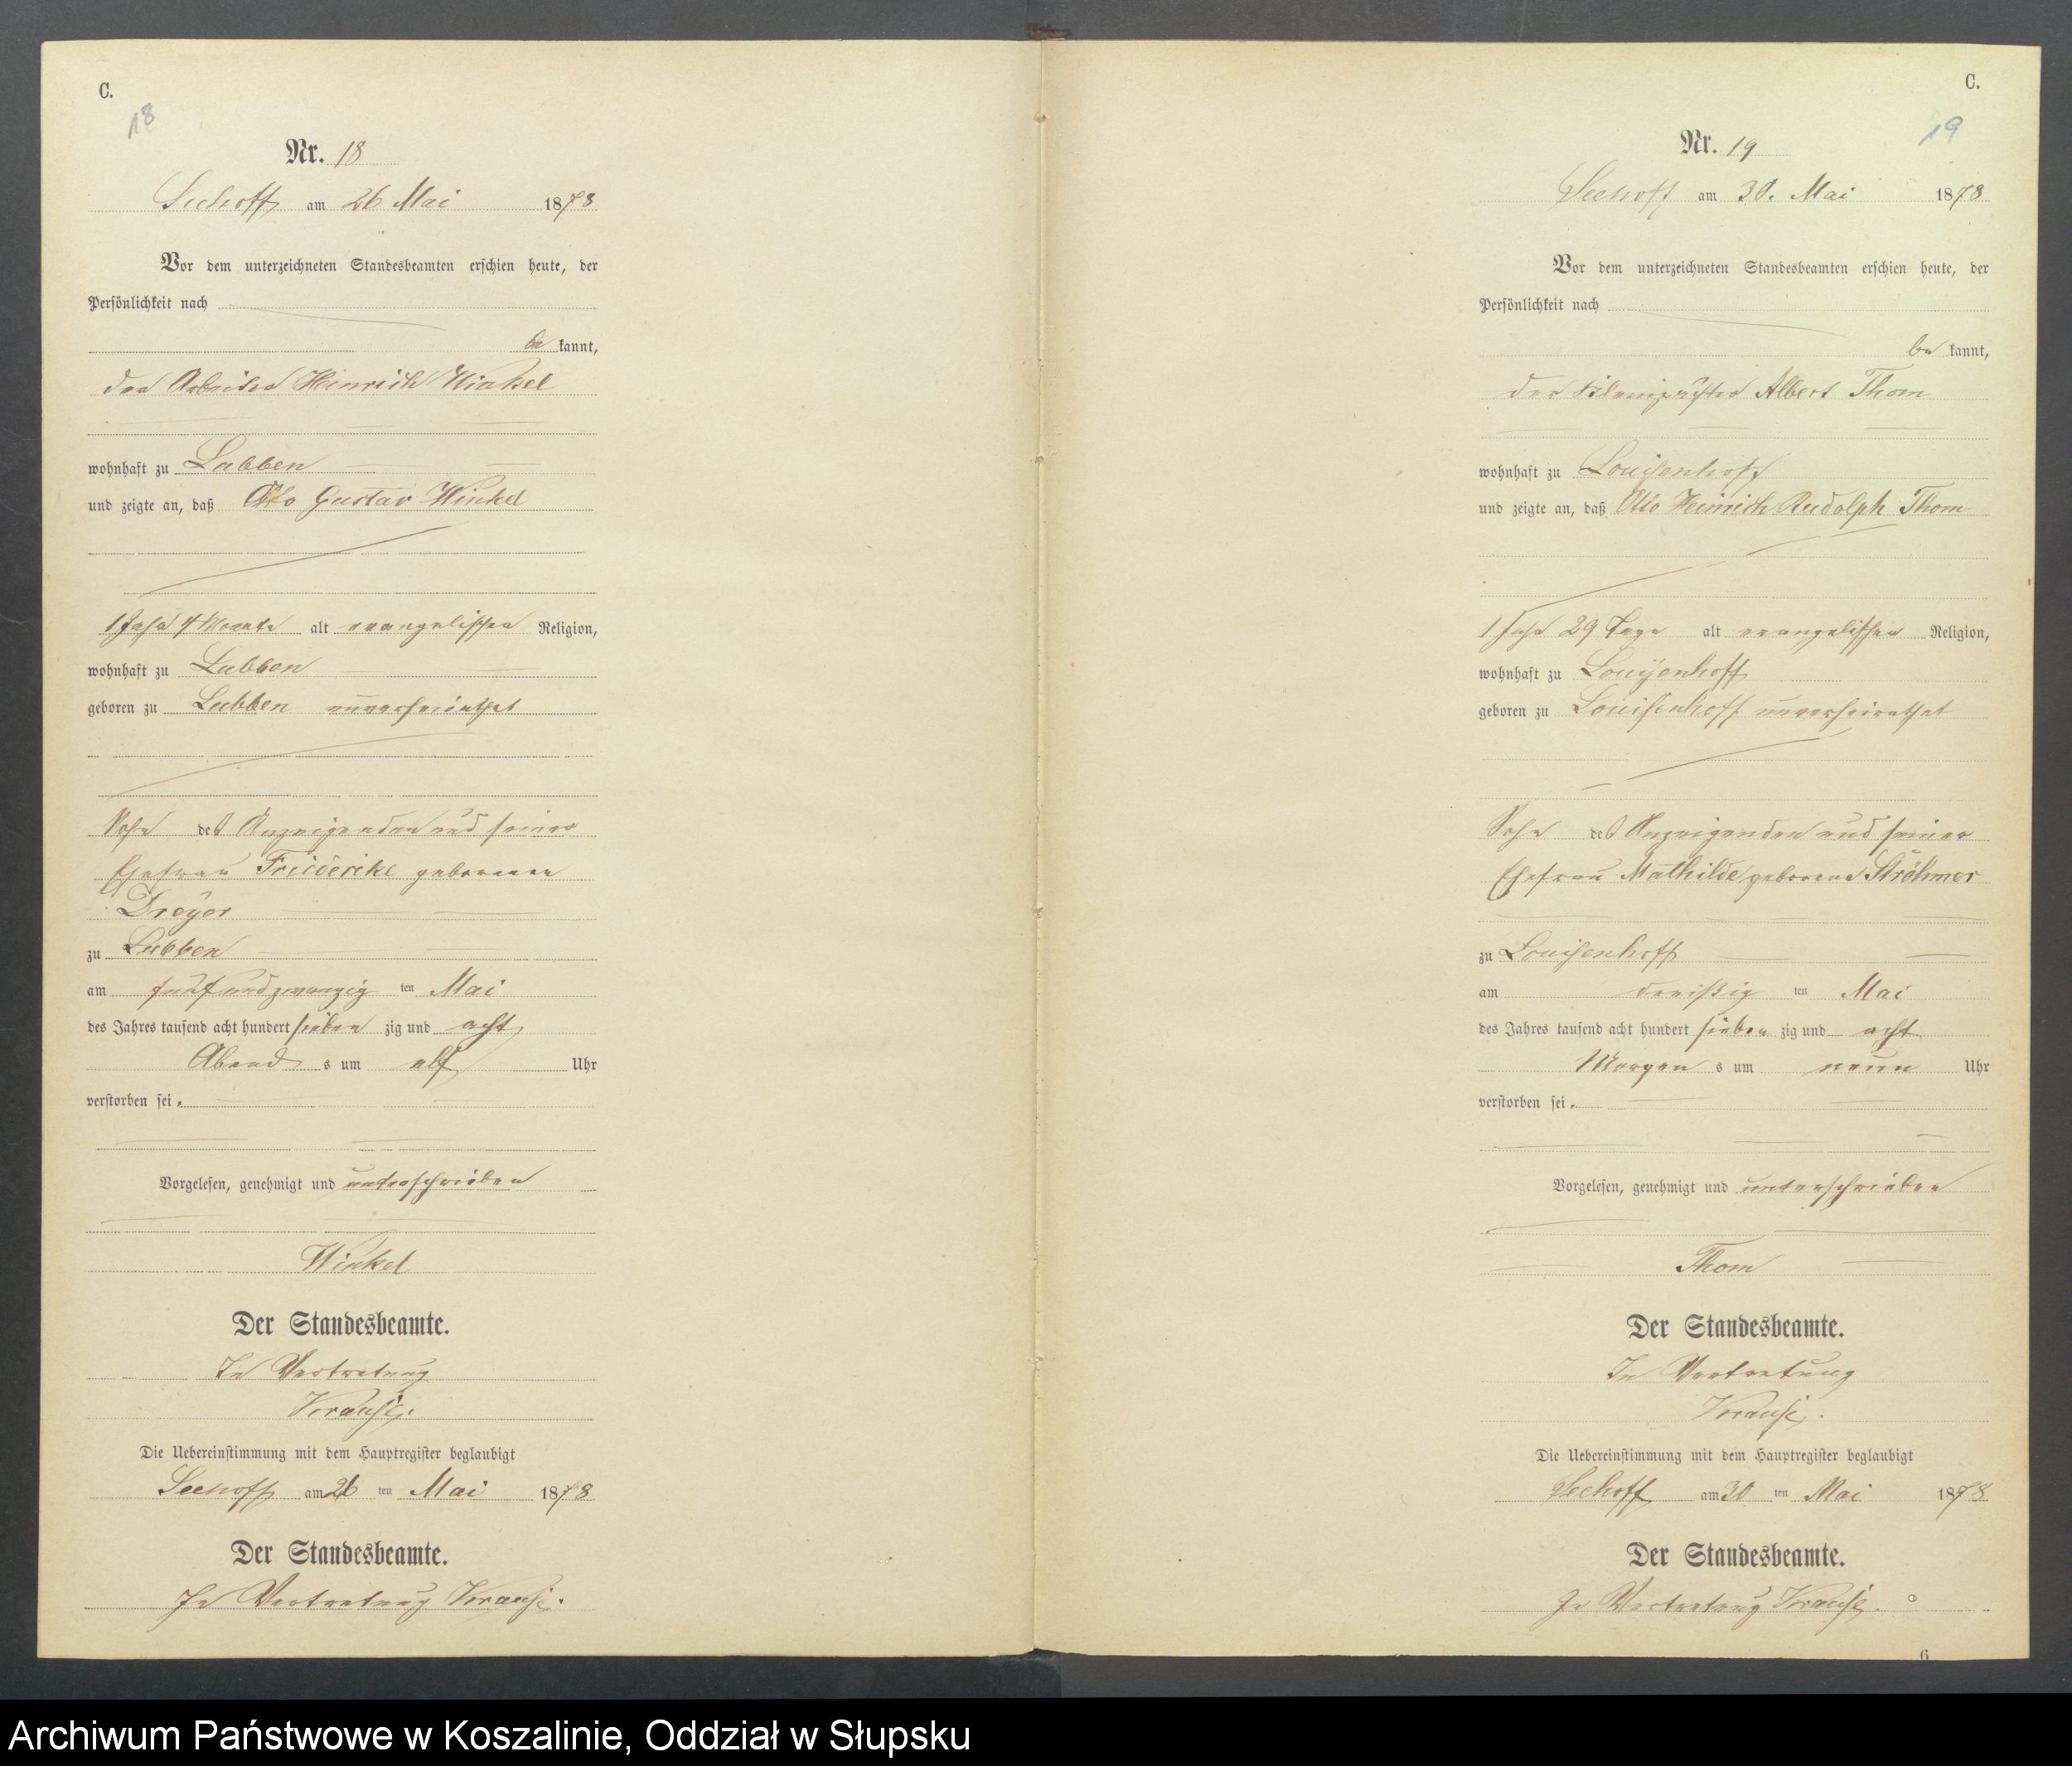 C.
18
Nr. 18
Seehoff am 26 Mai 1878
Vor dem unterzeichneten Standesbeamten erschien heute, der
Persönlichkeit nach
be kannt,
der Arbeiter Heinrich Winkel
wohnhaft zu Labben
und zeigte an, daß Otto Gustav Winkel
1 Jahr 4 Monate alt evangelischer Religion,
wohnhaft zu Labben
geboren zu Labben unverheirathet
Sohn des Anzeigenden und seiner
Ehefrau Friedericke geborenen
Dreyer
zu Labben
am fünfundzwanzig ten Mai
des Jahres tausend acht hundert sieben zig und acht
Abend s um elf Uhr
verstorben sei.
Vorgelesen, genehmigt und unterschrieben
Winkel
Der Standesbeamte.
In Vertretung
Krause.
Die Uebereinstimmung mit dem Hauptregister beglaubigt
Seehoff am 26 ten Mai 1878
Der Standesbeamte.
In Vertretung Krause.
C.
19
Nr. 19
Seehoff am 30. Mai 1878
Vor dem unterzeichneten Standesbeamten erschien heute, der
Persönlichkeit nach
be kannt,
der Albert Thom
wohnhaft zu Louisenhoff
und zeigte an, daß Otto Heinrich Rudolph Thom
1 Jahr 29 Tage alt evangelischer Religion,
wohnhaft zu Louisenhoff
geboren zu Louisenhoff unverheirathet
Sohn des Anzeigenden und seiner
Ehefrau Mathilde geborene Ströhmer
zu Louisenhoff
am dreißig ten Mai
des Jahres tausend acht hundert sieben zig und acht
Morgen s um neun Uhr
verstorben sei.
Vorgelesen, genehmigt und unterschrieben
Thom
Der Standesbeamte.
In Vertretung
Krause.
Die Uebereinstimmung mit dem Hauptregister beglaubigt
Seehoff am 30 ten Mai 1878
Der Standesbeamte.
In Vertretung Krause.
6
Archiwum Państwowe w Koszalinie, Oddział w Słupsku